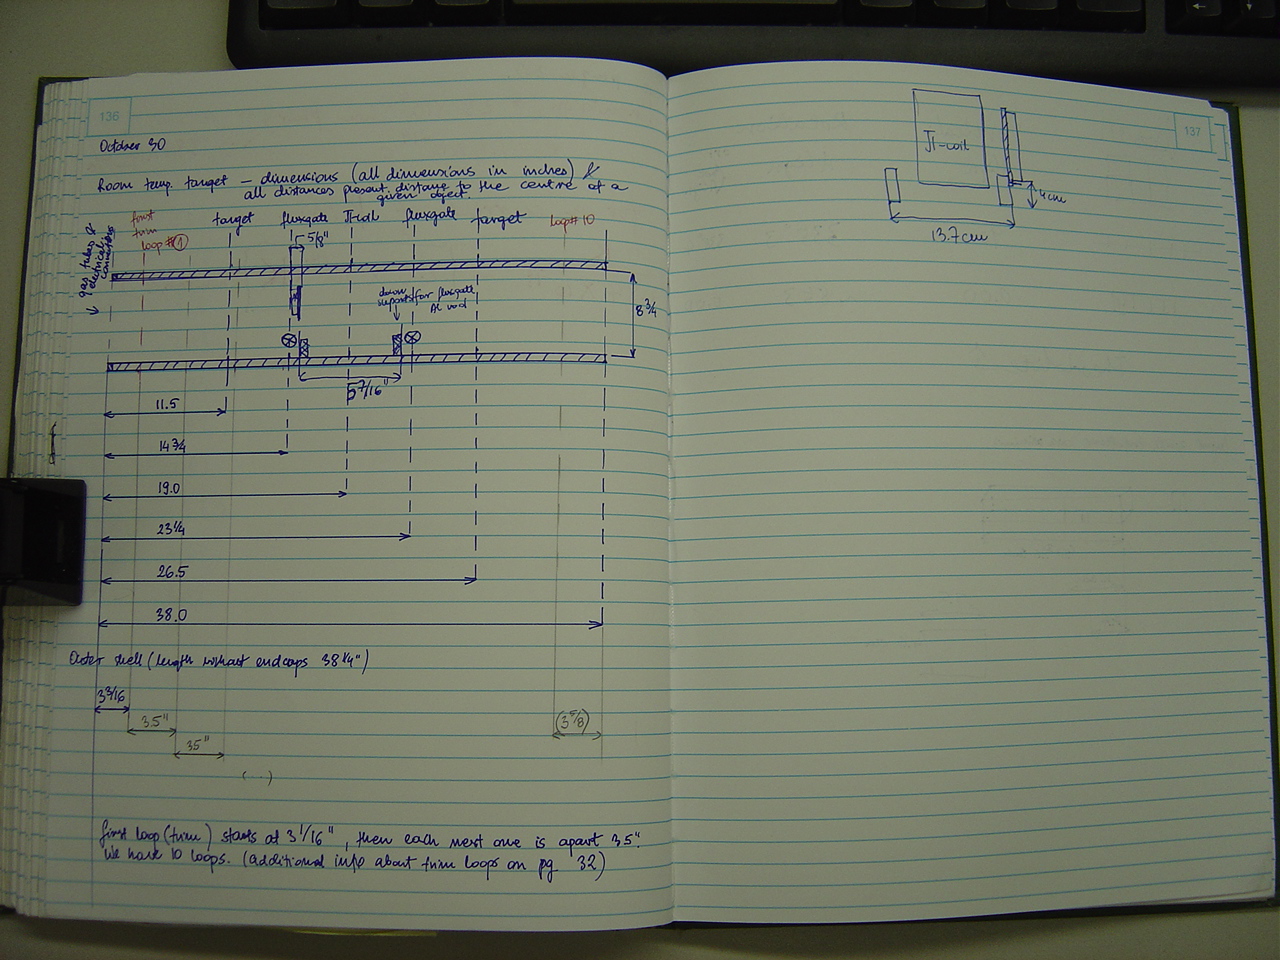 136
October 30
Room temp. target – dimensions (all dimensions in inches) &
all distances present distance to the centre of a
given object.
gas tubes &
electrical
connections
first
trim
loop #1
target
fluxgate
π-coil
fluxgate
target
loop #10
5/8"
down
supports for fluxgate
Al rod
8 3/4
5 7/16"
11.5
14 3/4
19.0
23 1/4
26.5
38.0
Outer shell (length without endcaps 38 1/4")
3 3/16
3.5"
3.5"
(3 5/8)
(....)
first loop (trim) starts at 3 1/16", then each next one is apart 3.5".
We have 10 loops. (additional info about trim loops on pg. 32)
137
π-coil
4 cm
13.7 cm